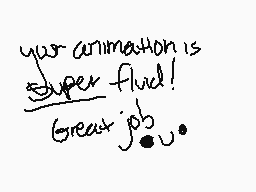 your animation is
super fluid!
Great job